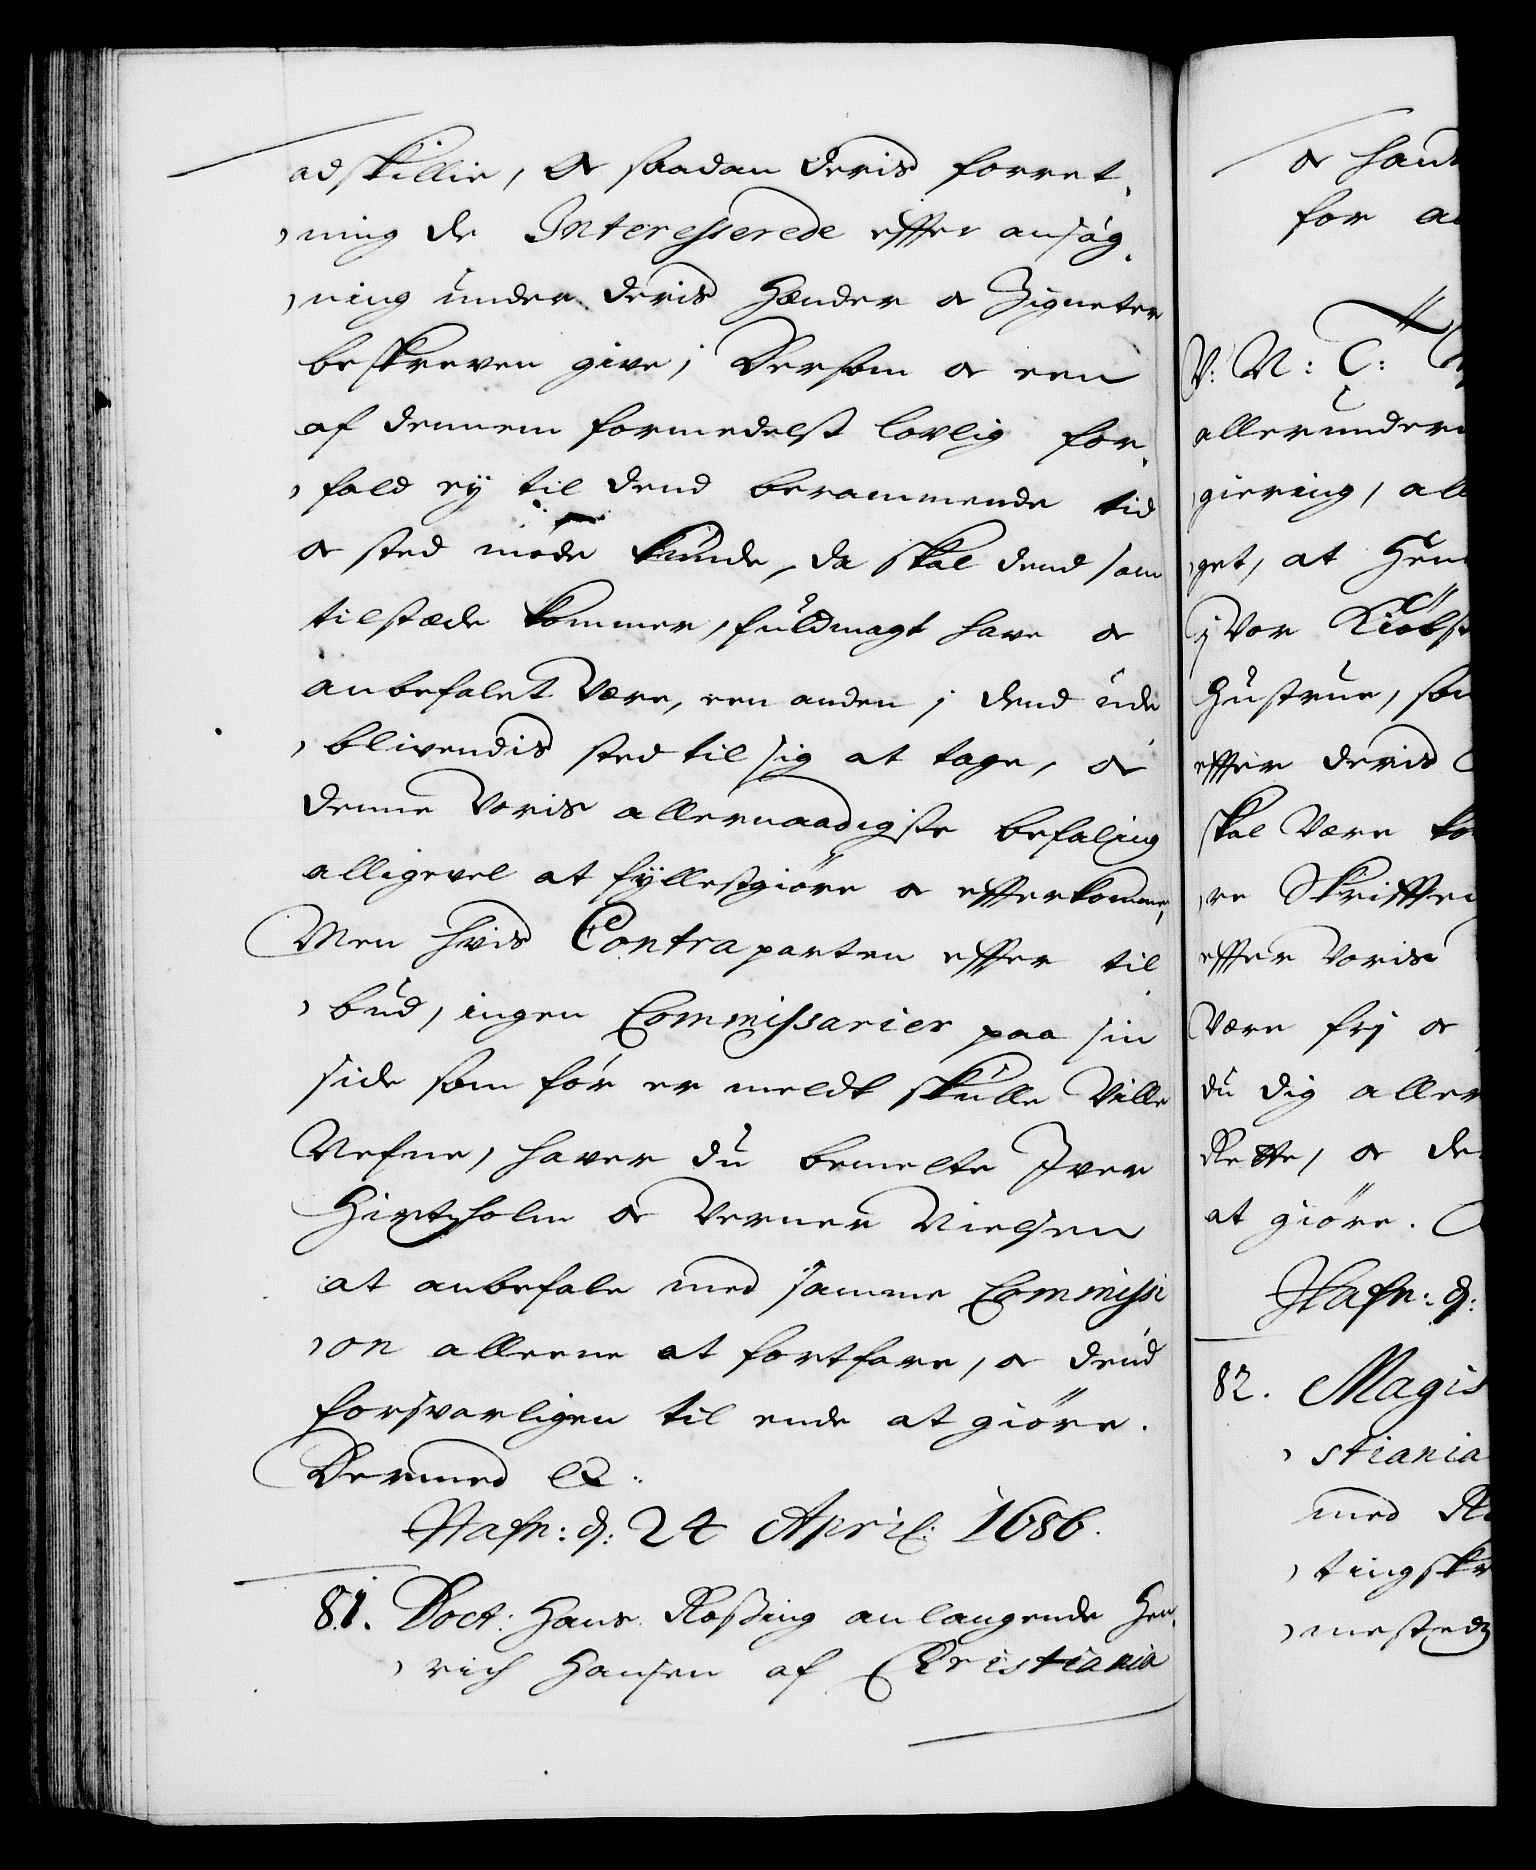 adskillie, Og saadan deris forret,
,ning de Interesserede effter ansøg,
,ning under deris Hænder og Zigneter
beskreven give; Dersom og een
af dennem formedelst lovlig for,
,fald ey til dend berammende tid
og sted møde kunde, da skal dend som
tilstæde kommer, fuldmagt have og
anbefalet være, een anden j dend ude
,blivendis sted til sig at tage, og
denne Voris allernaadigste befaling
alligevel at fyllestgiøre og effterkomme,
Men hvis Contraparten effter til,
,bud, ingen Commissarier paa sin
side som før er meldt skulle ville
Nefne, haver du bemelte Iver
Hirtzholm og Verner Nielsen
at anbefale med samme Commissi
,on alleene at fortfare, og dend
forsvarligen til ende at giøre.
Dermed &:
Hafn: d: 24 April: 1686.
81. Doct: Hans Rosing anlangende Hen,
,rich Hansen af Christiania
og hand
for
V: N: C:
allerunder
,giering, all
,get, at Hen
j vor Kiøbst
Hustrue, som
effter deris
skal være
,re Skriffte
effter voris
være frj og
du dig aller
Rette, og de
at giøre.
Hafn: d:
82. Magis
,stiania
med
,tingskr
,mestedz